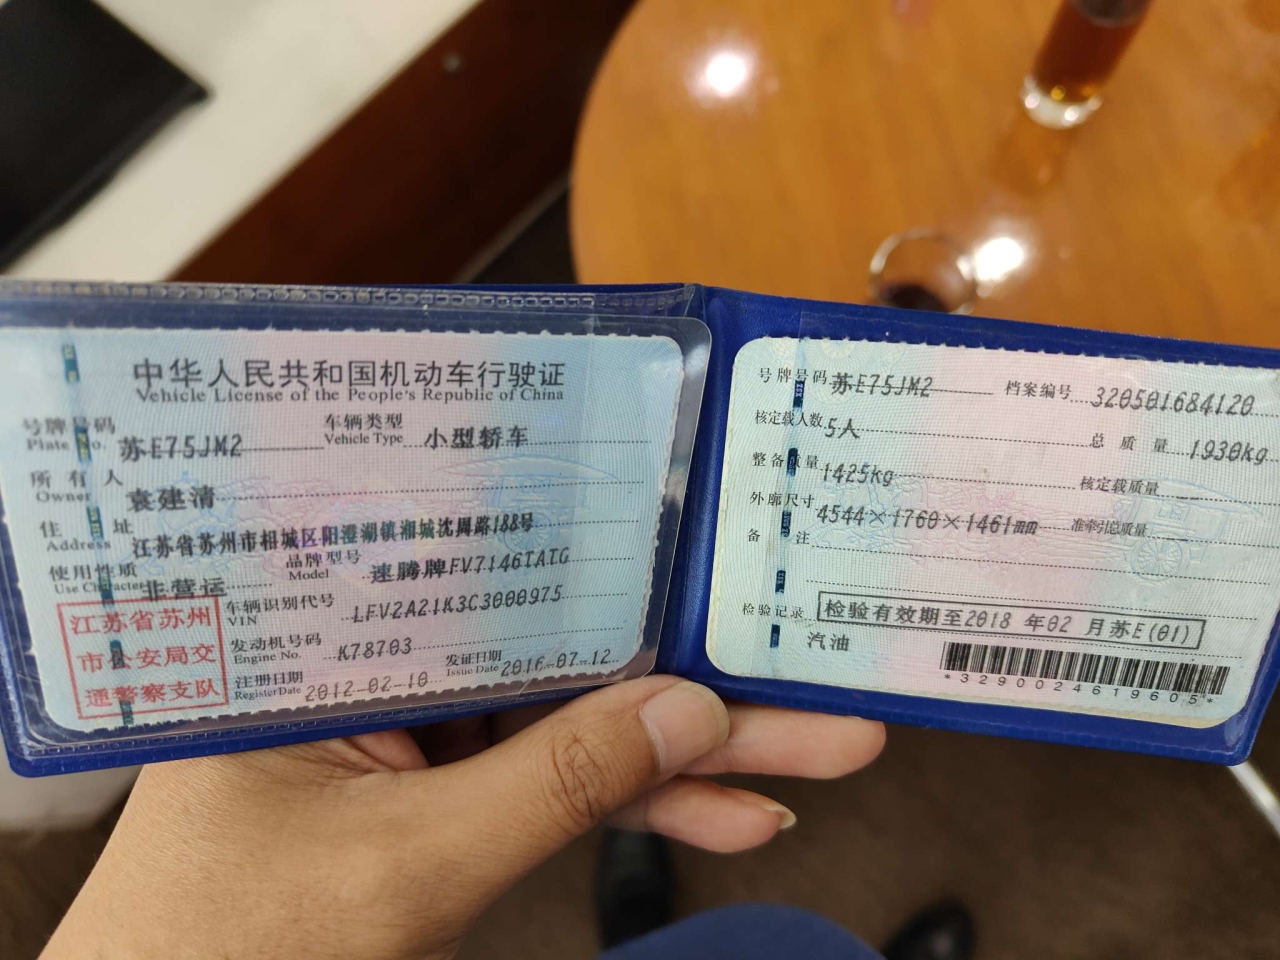 中华人民共和国机动车行驶证
Vehicle License of the People's Republic of China
号牌号码 苏E75JM2 车辆类型 小型轿车
Plate No. Vehicle Type
所有人 袁建清
Owner
住址 江苏省苏州市相城区阳澄湖镇湘城沈周路188号
Address
使用性质 非营运 品牌型号 速腾牌FV7146TATG
Use Character Model
车辆识别代号 LFV2A21K3C3000975
VIN
发动机号码 K78703
Engine No.
注册日期 2012-02-10 发证日期 2016-07-12
Register Date Issue Date
江苏省苏州
市公安局交
通警察支队
号牌号码 苏E75JM2 档案编号 320501684120
核定载人数 5人 总质量 1930kg
整备质量 1425kg 核定载质量
外廓尺寸 4544×1760×1461mm 准牵引总质量
备注
检验记录 检验有效期至2018 年02 月苏E(01)
汽油
*3290024619605*